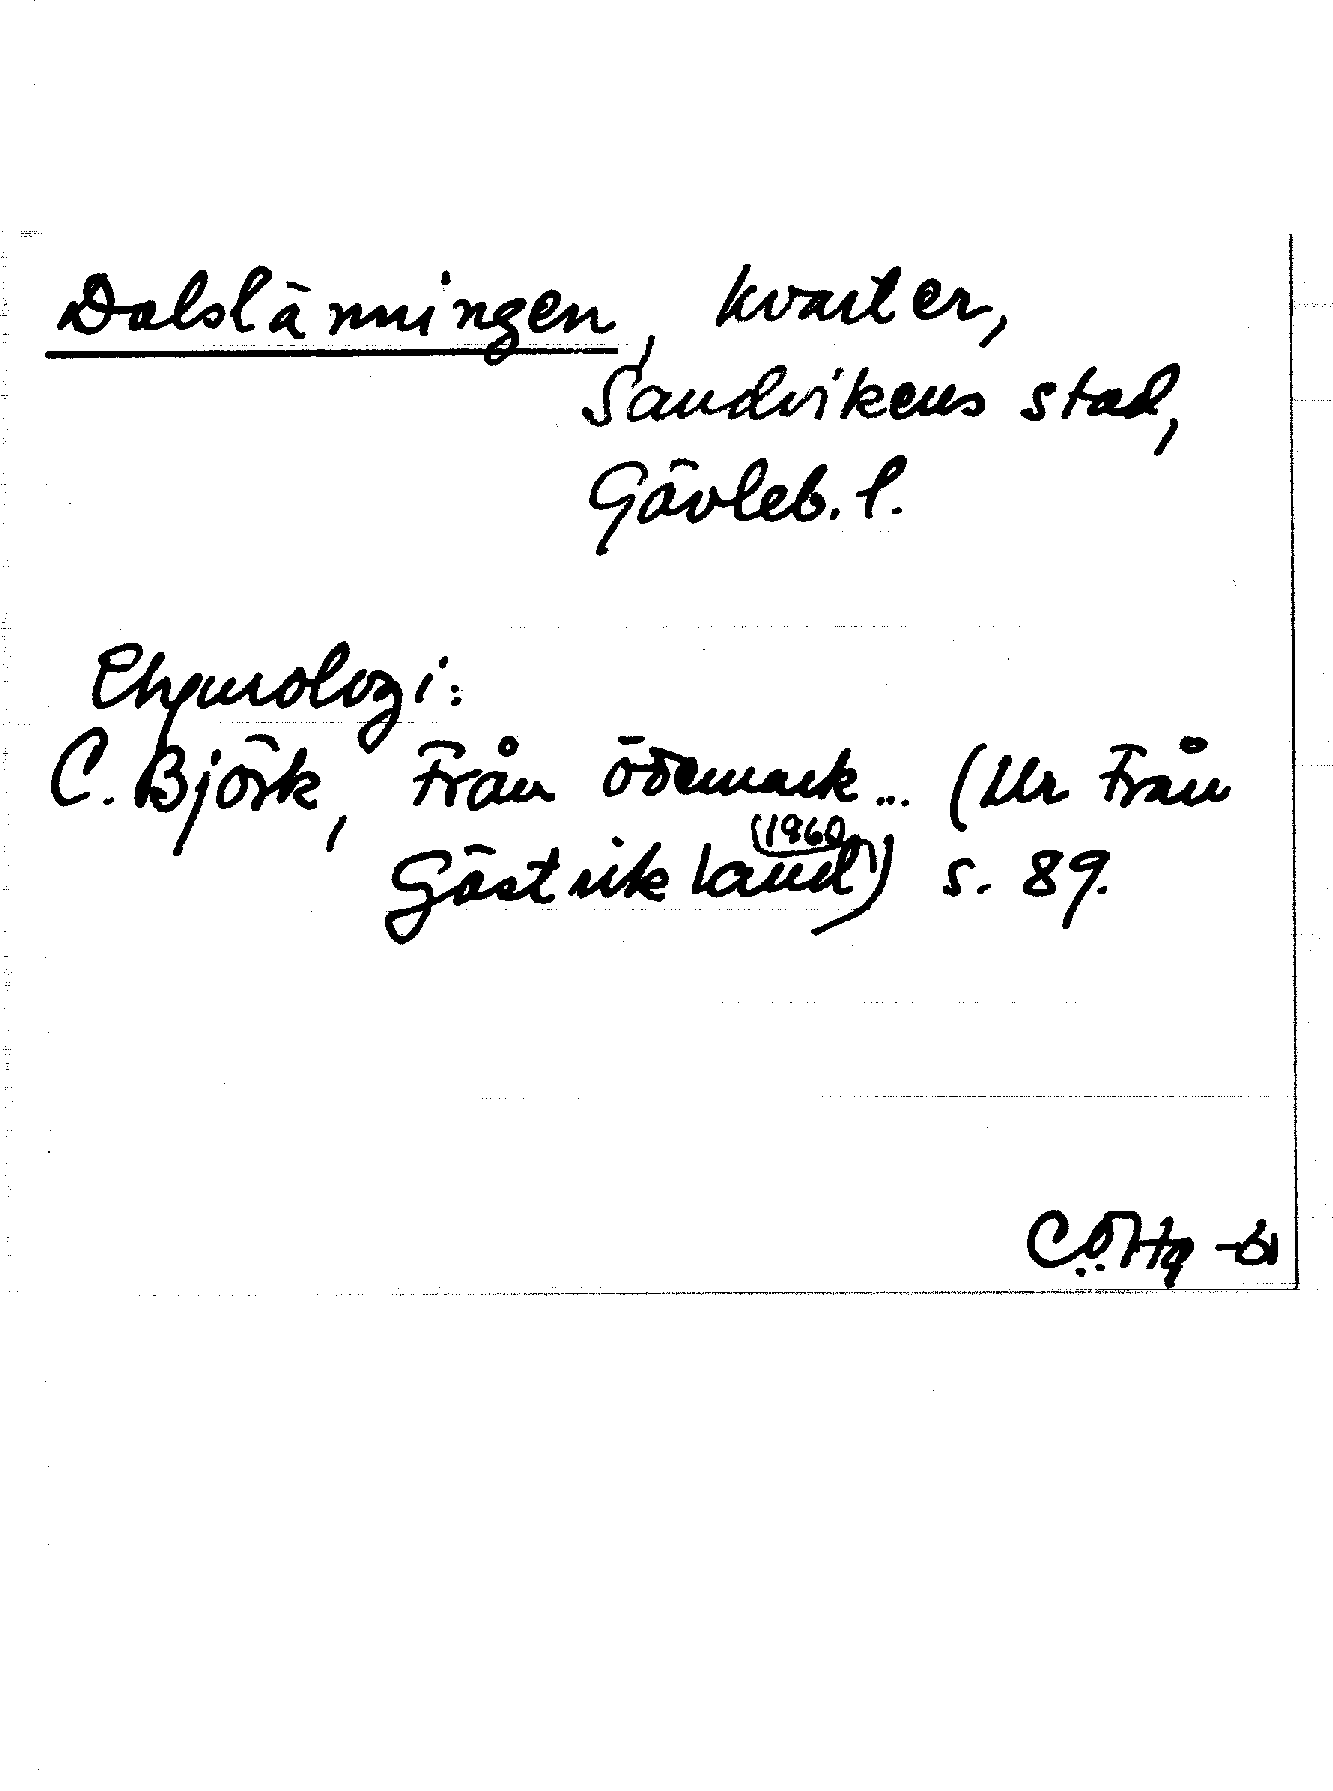 Dalslänningen, kvarter,
Sandvikens stad,
Gävleb. l.
Etymologi:
C. Björk, Från ödemark... (Ur Från
Gästrikland (1960)) s. 89.
CÖHg -61